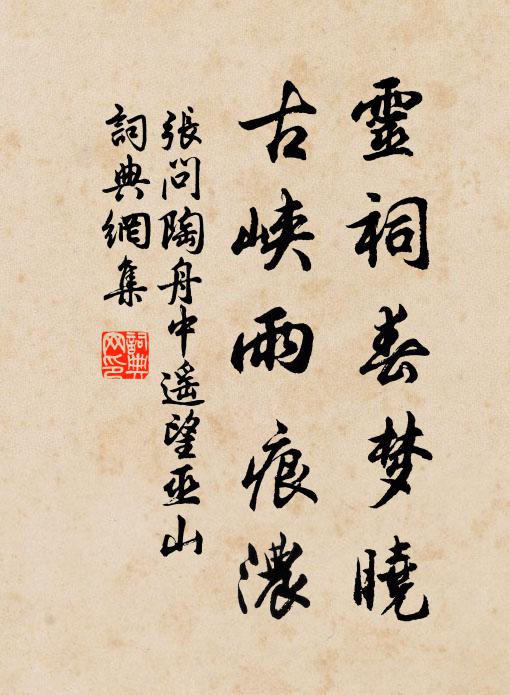 靈祠春梦曉
古峡雨痕濃
張問陶舟中遥望巫山
詞典網集
詞典网印